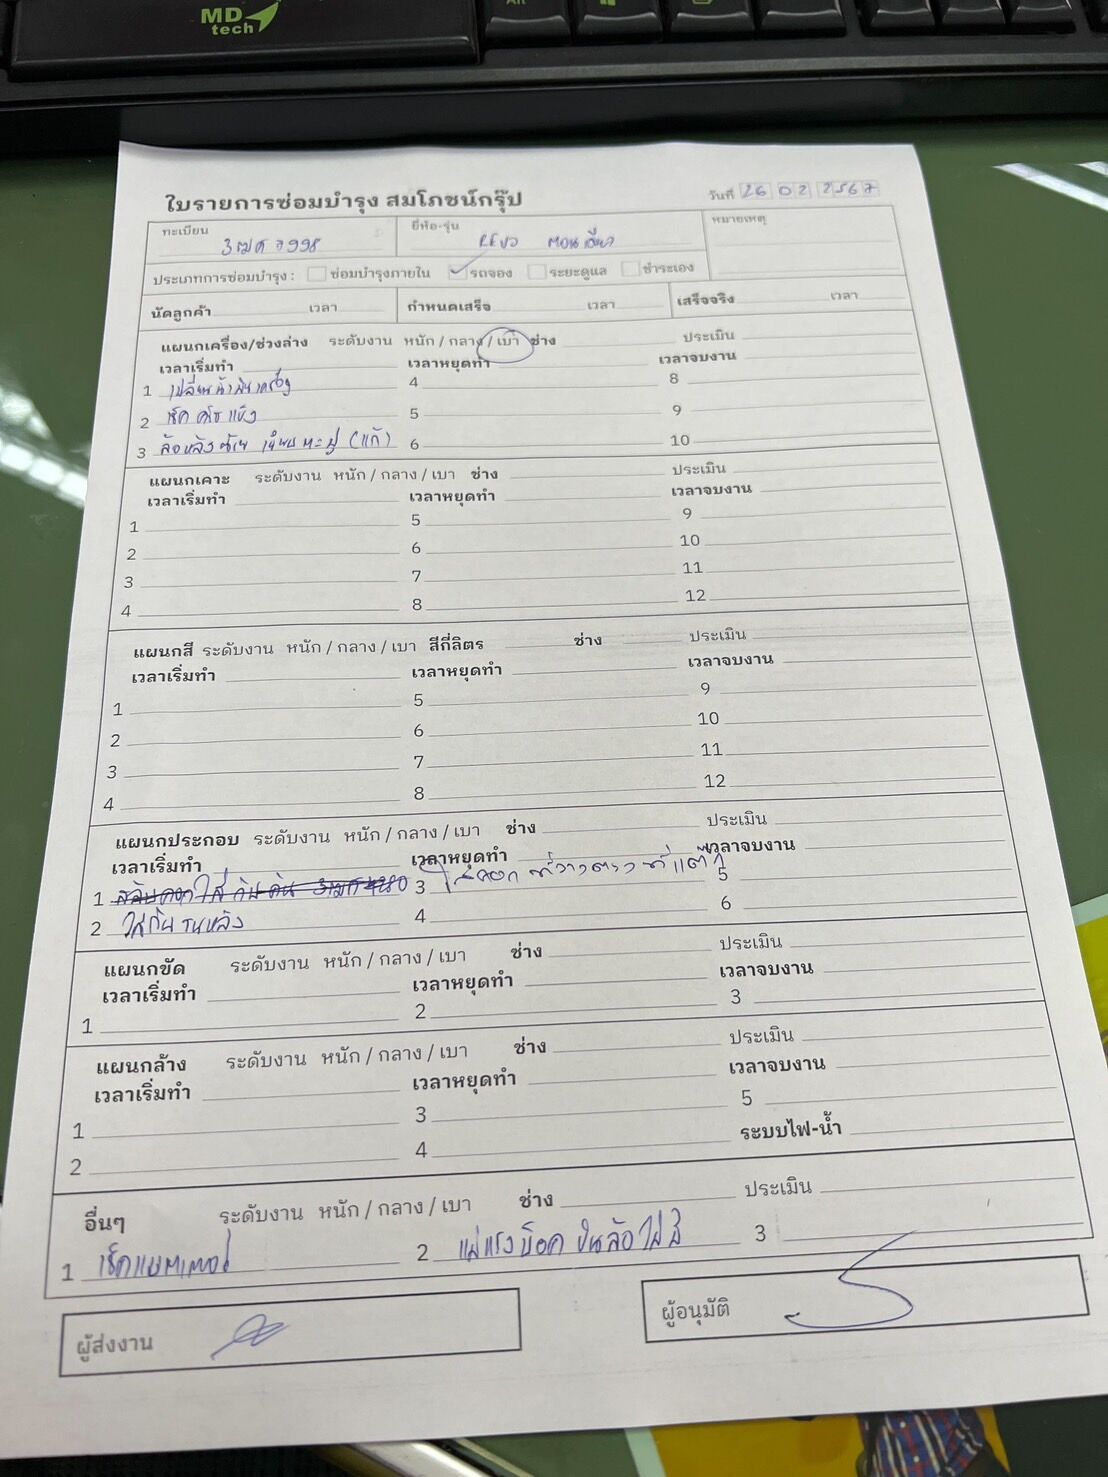 MD
tech
ใบรายการซ่อมบำรุง สมโภชน์กรุ๊ป
วันที่ 26 02 2567
ทะเบียน
ยี่ห้อ-รุ่น REVO ตอนเดียว
หมายเหตุ
ประเภทการซ่อมบำรุง : ซ่อมบำรุงภายใน รถจอง ระยะดูแล ชำระเอง
นัดลูกค้า เวลา กำหนดเสร็จ เวลา เสร็จจริง เวลา
แผนกเครื่อง/ช่วงล่าง ระดับงาน หนัก / กลาง / เบา ช่าง ประเมิน
เวลาเริ่มทำ เวลาหยุดทำ เวลาจบงาน
1 เปลี่ยนน้ำมันเครื่อง 4 8
2 เช็ค 5 9
3 ล้อหลังซ้าย (แก้) 6 10
แผนกเคาะ ระดับงาน หนัก / กลาง / เบา ช่าง ประเมิน
เวลาเริ่มทำ เวลาหยุดทำ เวลาจบงาน
1 5 9
2 6 10
3 7 11
4 8 12
แผนกสี ระดับงาน หนัก / กลาง / เบา สีกี่ลิตร ช่าง ประเมิน
เวลาเริ่มทำ เวลาหยุดทำ เวลาจบงาน
1 5 9
2 6 10
3 7 11
4 8 12
แผนกประกอบ ระดับงาน หนัก / กลาง / เบา ช่าง ประเมิน
เวลาเริ่มทำ เวลาหยุดทำ เวลาจบงาน
1 3 5
2 ใส่กันชนหลัง 4 6
แผนกขัด ระดับงาน หนัก / กลาง / เบา ช่าง ประเมิน
เวลาเริ่มทำ เวลาหยุดทำ เวลาจบงาน
1 2 3
แผนกล้าง ระดับงาน หนัก / กลาง / เบา ช่าง ประเมิน
เวลาเริ่มทำ เวลาหยุดทำ เวลาจบงาน
1 3 5
2 4 ระบบไฟ-น้ำ
อื่นๆ ระดับงาน หนัก / กลาง / เบา ช่าง ประเมิน
1 เช็คแบตเตอรี่ 2 แม่แรง บ็อค ขันล้อ ใส่สี 3
ผู้ส่งงาน
ผู้อนุมัติ